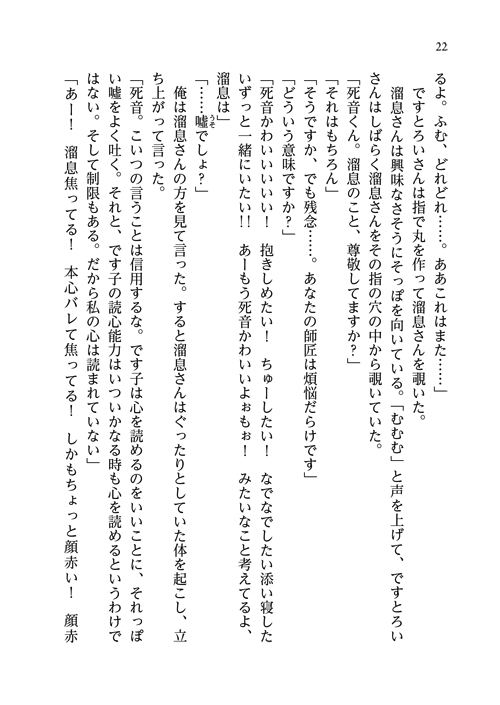 22
るよ。ふむ、どれどれ……。ああこれはまた……」
　ですとろいさんは指で丸を作って溜息さんを覗いた。
　溜息さんは興味なさそうにそっぽを向いている。「むむむ」と声を上げて、ですとろい
さんはしばらく溜息さんをその指の穴の中から覗いていた。
「死音くん。溜息のこと、尊敬してますか？」
「それはもちろん」
「そうですか、でも残念……。あなたの師匠は煩悩だらけです」
「どういう意味ですか？」
「死音かわいいいいい！　抱きしめたい！　ちゅーしたい！　なでなでしたい添い寝した
いずっと一緒にいたい!!　あーもう死音かわいいよぉもぉ！　みたいなこと考えてるよ、
溜息は」
「……嘘でしょ？」
うそ
　俺は溜息さんの方を見て言った。すると溜息さんはぐったりとしていた体を起こし、立
ち上がって言った。
「死音。こいつの言うことは信用するな。です子は心を読めるのをいいことに、それっぽ
い嘘をよく吐く。それと、です子の読心能力はいついかなる時も心を読めるというわけで
はない。そして制限もある。だから私の心は読まれていない」
「あー！　溜息焦ってる！　本心バレて焦ってる！　しかもちょっと顔赤い！　顔赤